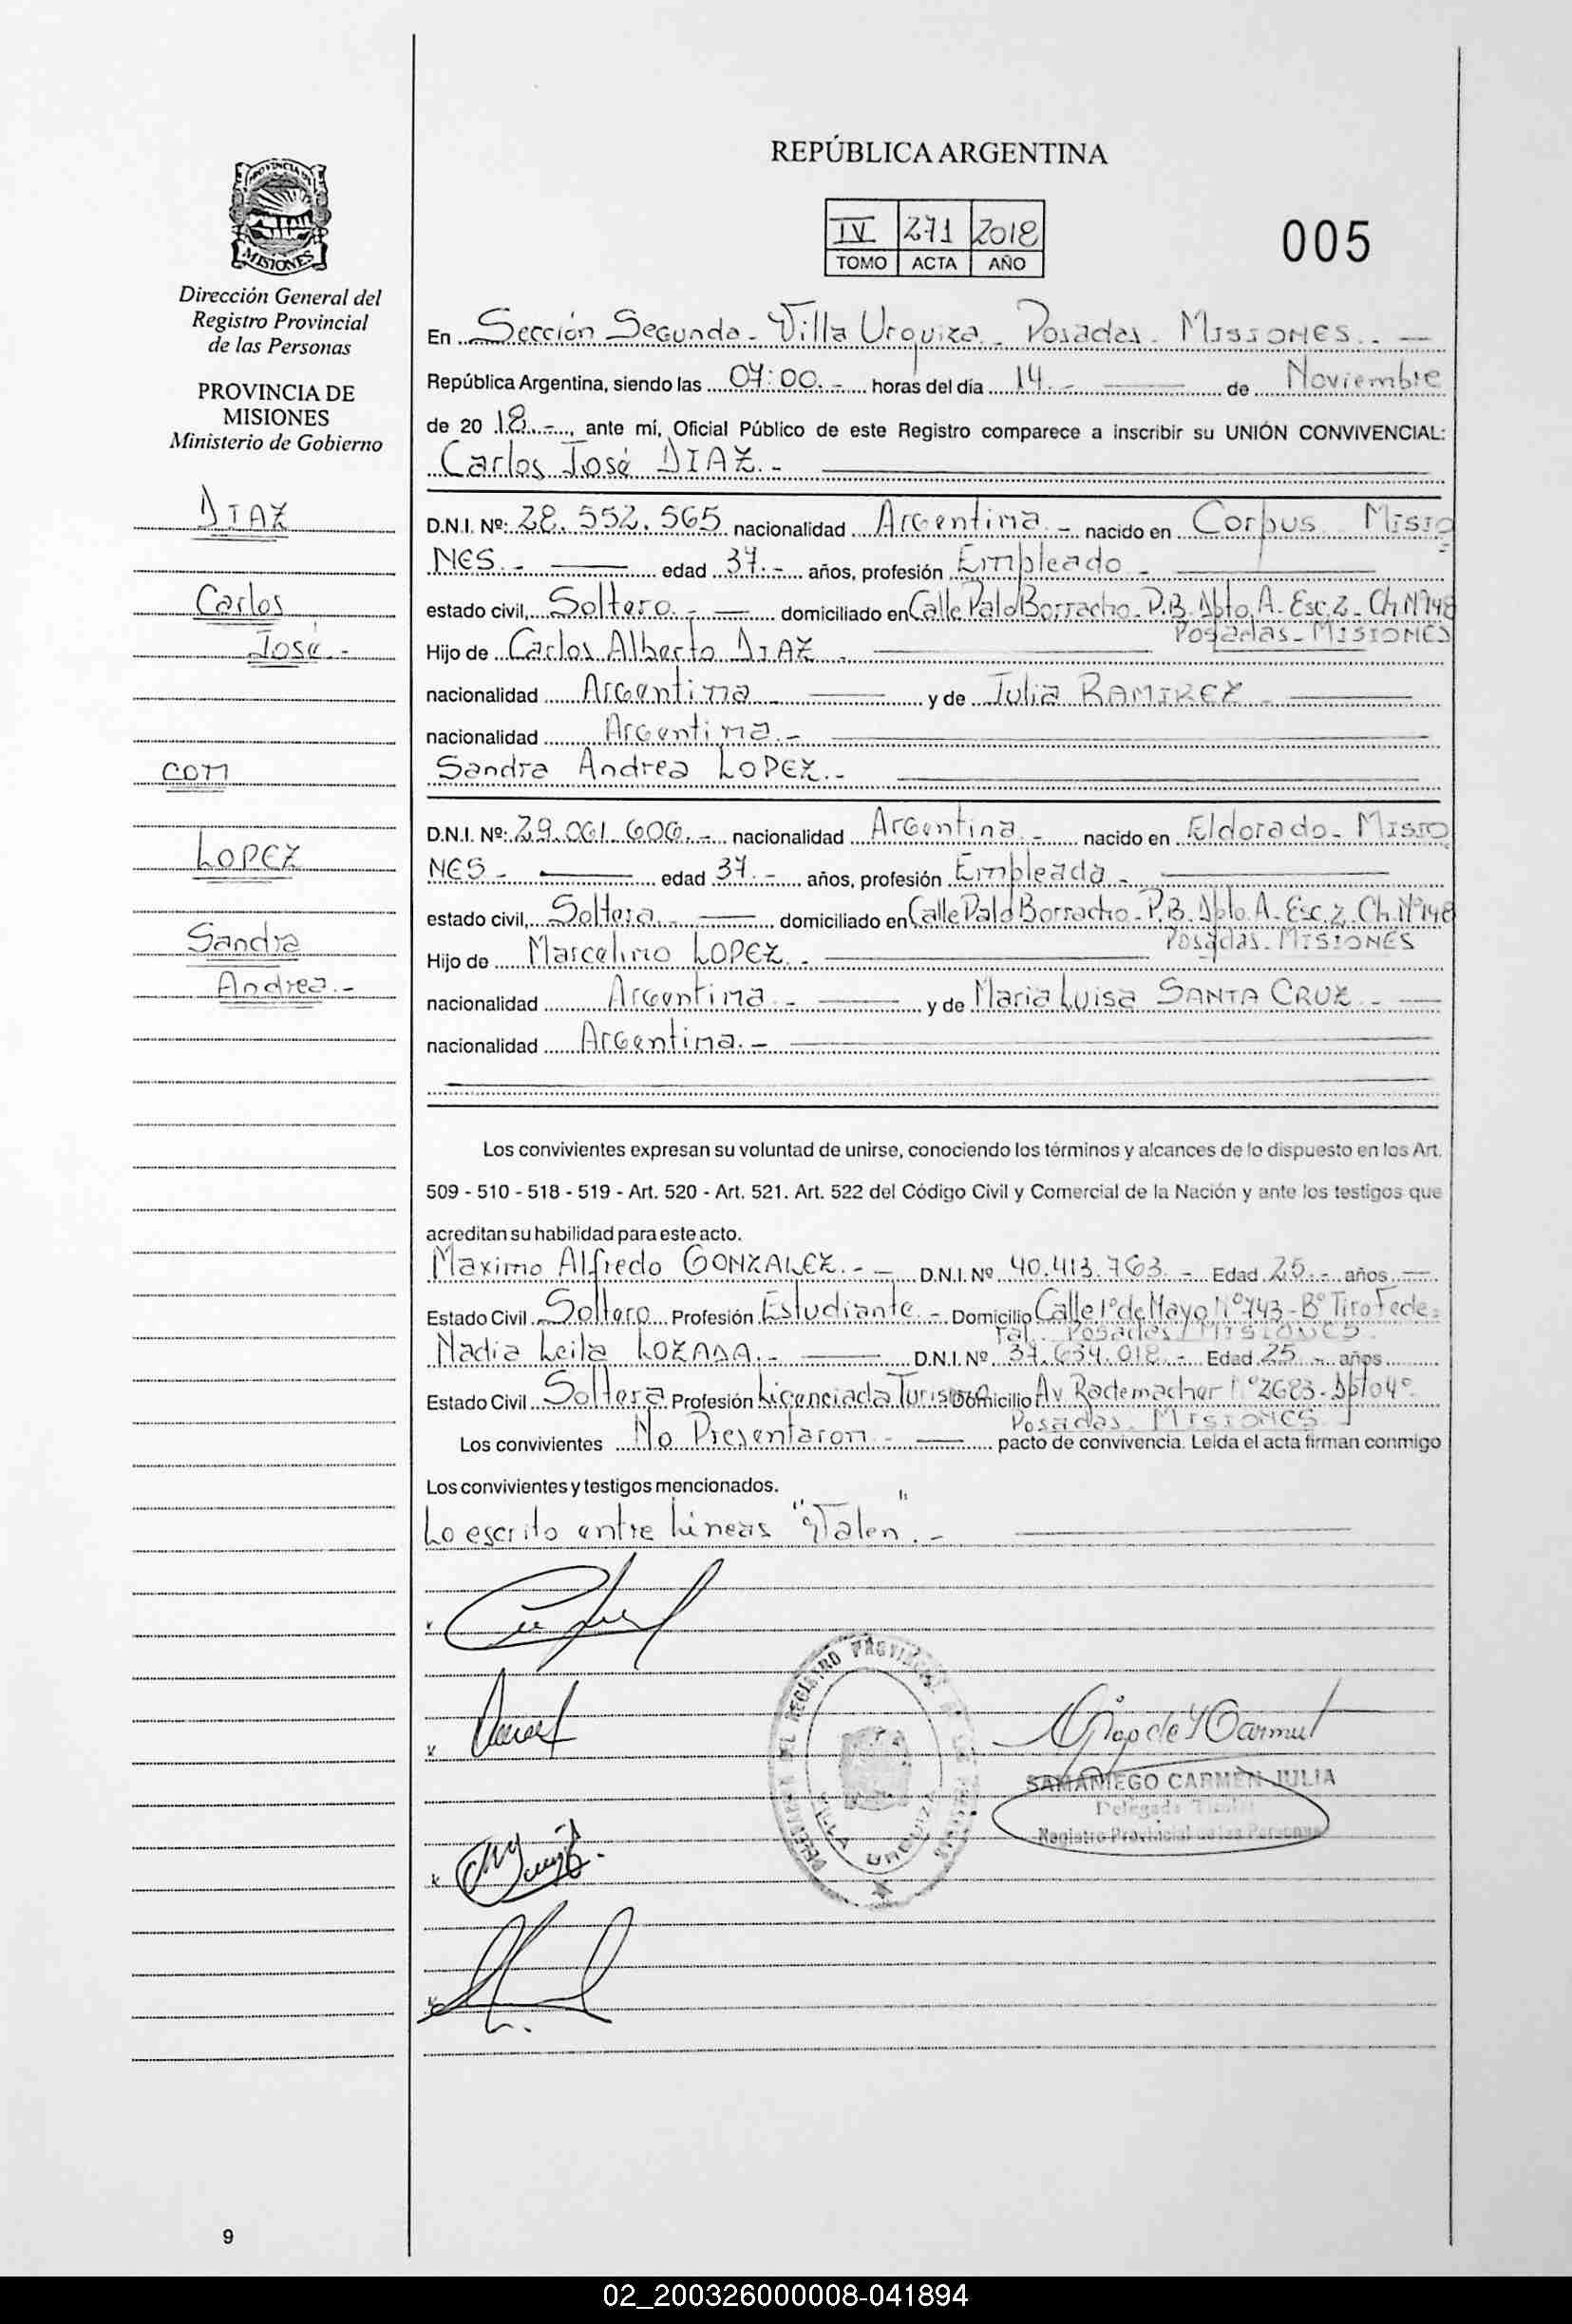 REPÚBLICA ARGENTINA
PROVINCIA DE
MISIONES
IV 271 2018
TOMO ACTA AÑO
005
Dirección General del
Registro Provincial
de las Personas
PROVINCIA DE
MISIONES
Ministerio de Gobierno
DIAZ
Carlos
José.-
con
LOPEZ
Sandra
Andrea.-
En Sección Segunda - Villa Urquiza - Posadas - MISIONES.-
República Argentina, siendo las 07:00.- horas del día 14.- de Noviembre
de 2018.-, ante mí, Oficial Público de este Registro comparece a inscribir su UNIÓN CONVIVENCIAL:
Carlos José DIAZ.-
D.N.I. Nº: 28.552.565 nacionalidad Argentina.- nacido en Corpus Misio
NES.- edad 37.- años, profesión Empleado -
estado civil, Soltero.- domiciliado en Calle Palo Borracho - P.B. Dpto. A - Esc. 2 - Ch. Nº 148
Posadas - MISIONES
Hijo de Carlos Alberto DIAZ -
nacionalidad Argentina - y de Julia RAMIREZ -
nacionalidad Argentina.-
Sandra Andrea LOPEZ.-
D.N.I. Nº: 29.061.606.- nacionalidad Argentina.- nacido en Eldorado - Misio
NES - edad 37.- años, profesión Empleada -
estado civil, Soltera.- domiciliado en Calle Palo Borracho - P.B. Dpto. A - Esc. 2 - Ch. Nº 148
Posadas - MISIONES
Hijo de Marcelino LOPEZ.-
nacionalidad Argentina.- y de Maria Luisa SANTA CRUZ -
nacionalidad Argentina.-
Los convivientes expresan su voluntad de unirse, conociendo los términos y alcances de lo dispuesto en los Art.
509 - 510 - 518 - 519 - Art. 520 - Art. 521. Art. 522 del Código Civil y Comercial de la Nación y ante los testigos que
acreditan su habilidad para este acto.
Maximo Alfredo GONZALEZ.- D.N.I. Nº 40.413.763.- Edad 25.- años
Estado Civil Soltero Profesión Estudiante.- Domicilio Calle 1º de Mayo Nº 743 - Bº Tiro Fede
ral - Posadas MISIONES
Nadia Leila LOZADA.- D.N.I. Nº 37.634.018.- Edad 25 - años
Estado Civil Soltera Profesión Licenciada Turismo Domicilio Av. Rademacher Nº 2683 - Dpto 4º
Posadas - MISIONES
Los convivientes No Presentaron - pacto de convivencia. Leída el acta firman conmigo
Los convivientes y testigos mencionados.
Lo escrito entre líneas "Valen".-
DELEGACIÓN DEL REGISTRO PROVINCIAL DE LAS PERSONAS
VILLA URQUIZA
SAMANIEGO CARMEN JULIA
Delegada Titular
Registro Provincial de las Personas
9
02_200326000008-041894